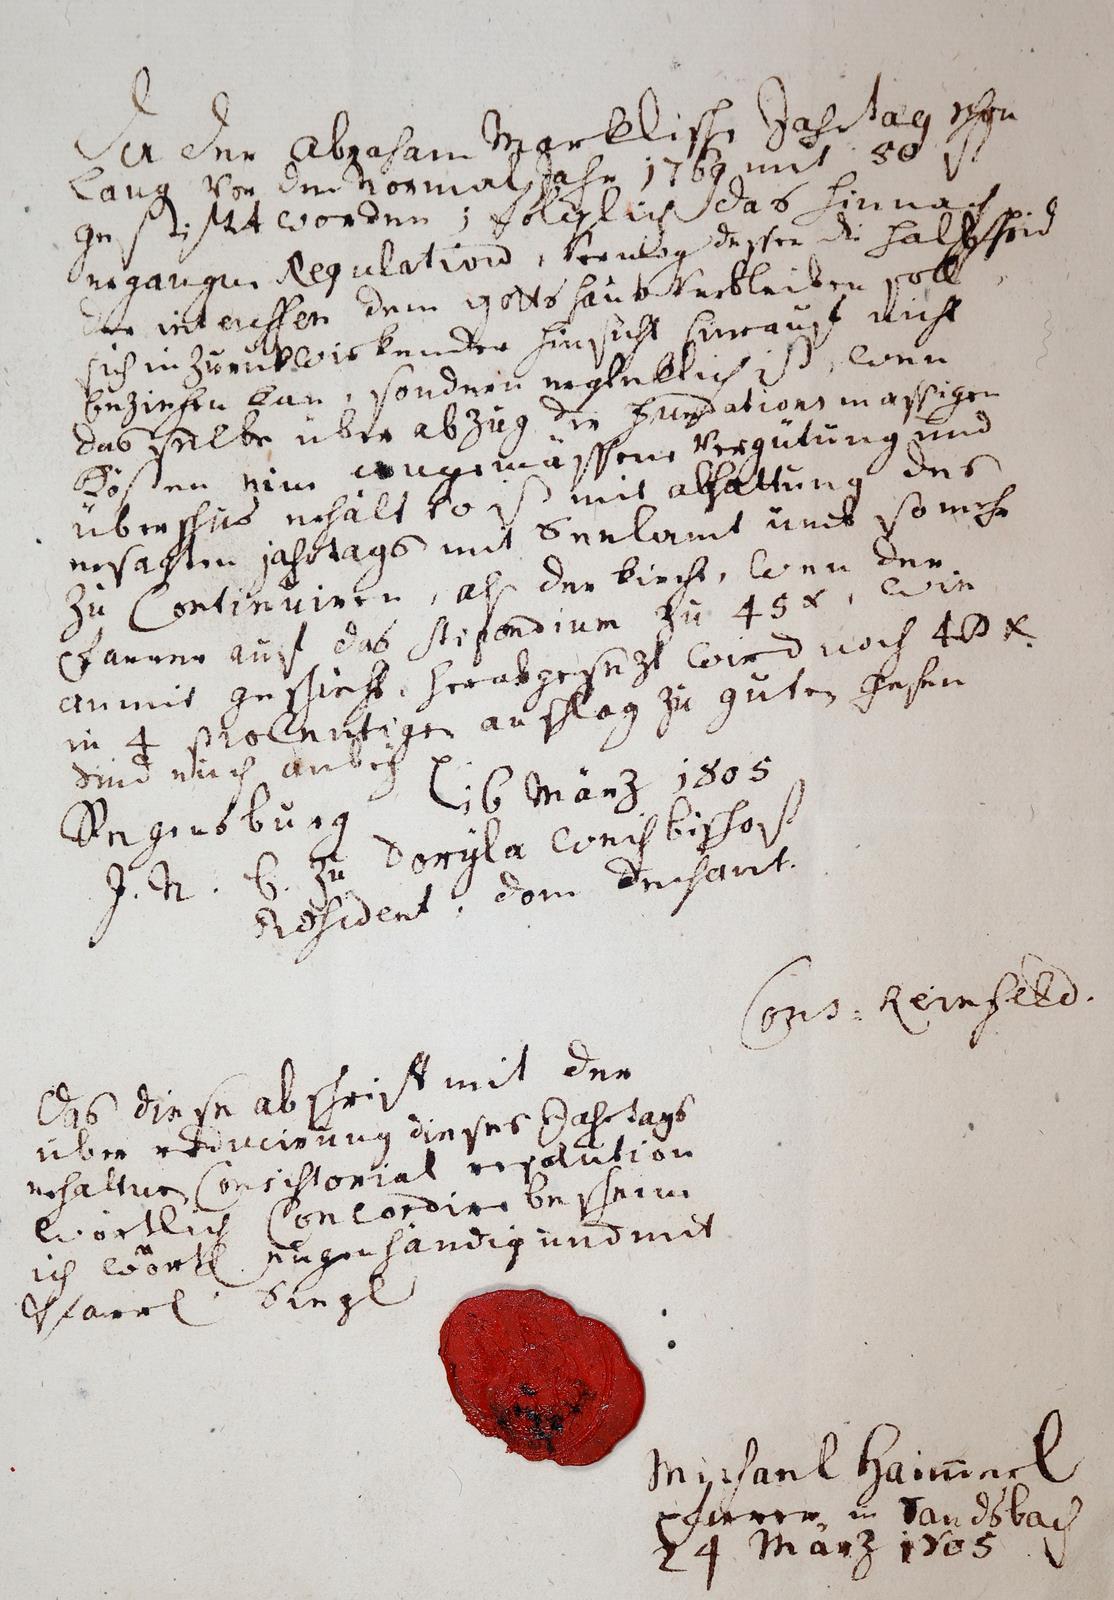 Da der Abraham Merklische Jahrtag schon
lang vor dem Normal Jahr 1769 mit 50 fl
gestiftet worden; folglich das hinnach
ergangne Regulativ, vermög dessen die halbscheid
der interessen dem gottshaus verbleiben soll,
sich in zurukwirkender hinsicht hierauf nicht
beziehen kan, sondern erkleklich ist, wen
das selbe über abzug der fundations mässigen
kösten eine angemässene Vergütung und
überschus erhält so ist mit abhaltung des
besagten jahrtags mit Seelamt um so mehr
zu Continuiren, als der kirche, wen der
Pfarrer auf das stipendium zu 45 x, wie
anmit geschieht, herabgesezt wird noch 40 x.
in 4 prolentigen anschlag zu guten gehen
Sind euch anbei
Regensburg 16 März 1805
J. N. B. zu Doryla Weichbischof
President, dom dechant.
Cons: Reinfeld.
Das diese abschrift mit der
über reducirung dieses Jahrtags
erhaltnen Consistorial resolution
wörtlich Concordire bescheine
ich wörtl eugenhändig und mit
Pfarrl Siegl
Michael Haimerl
Pfarrer in Sandsbach
24 März 1805